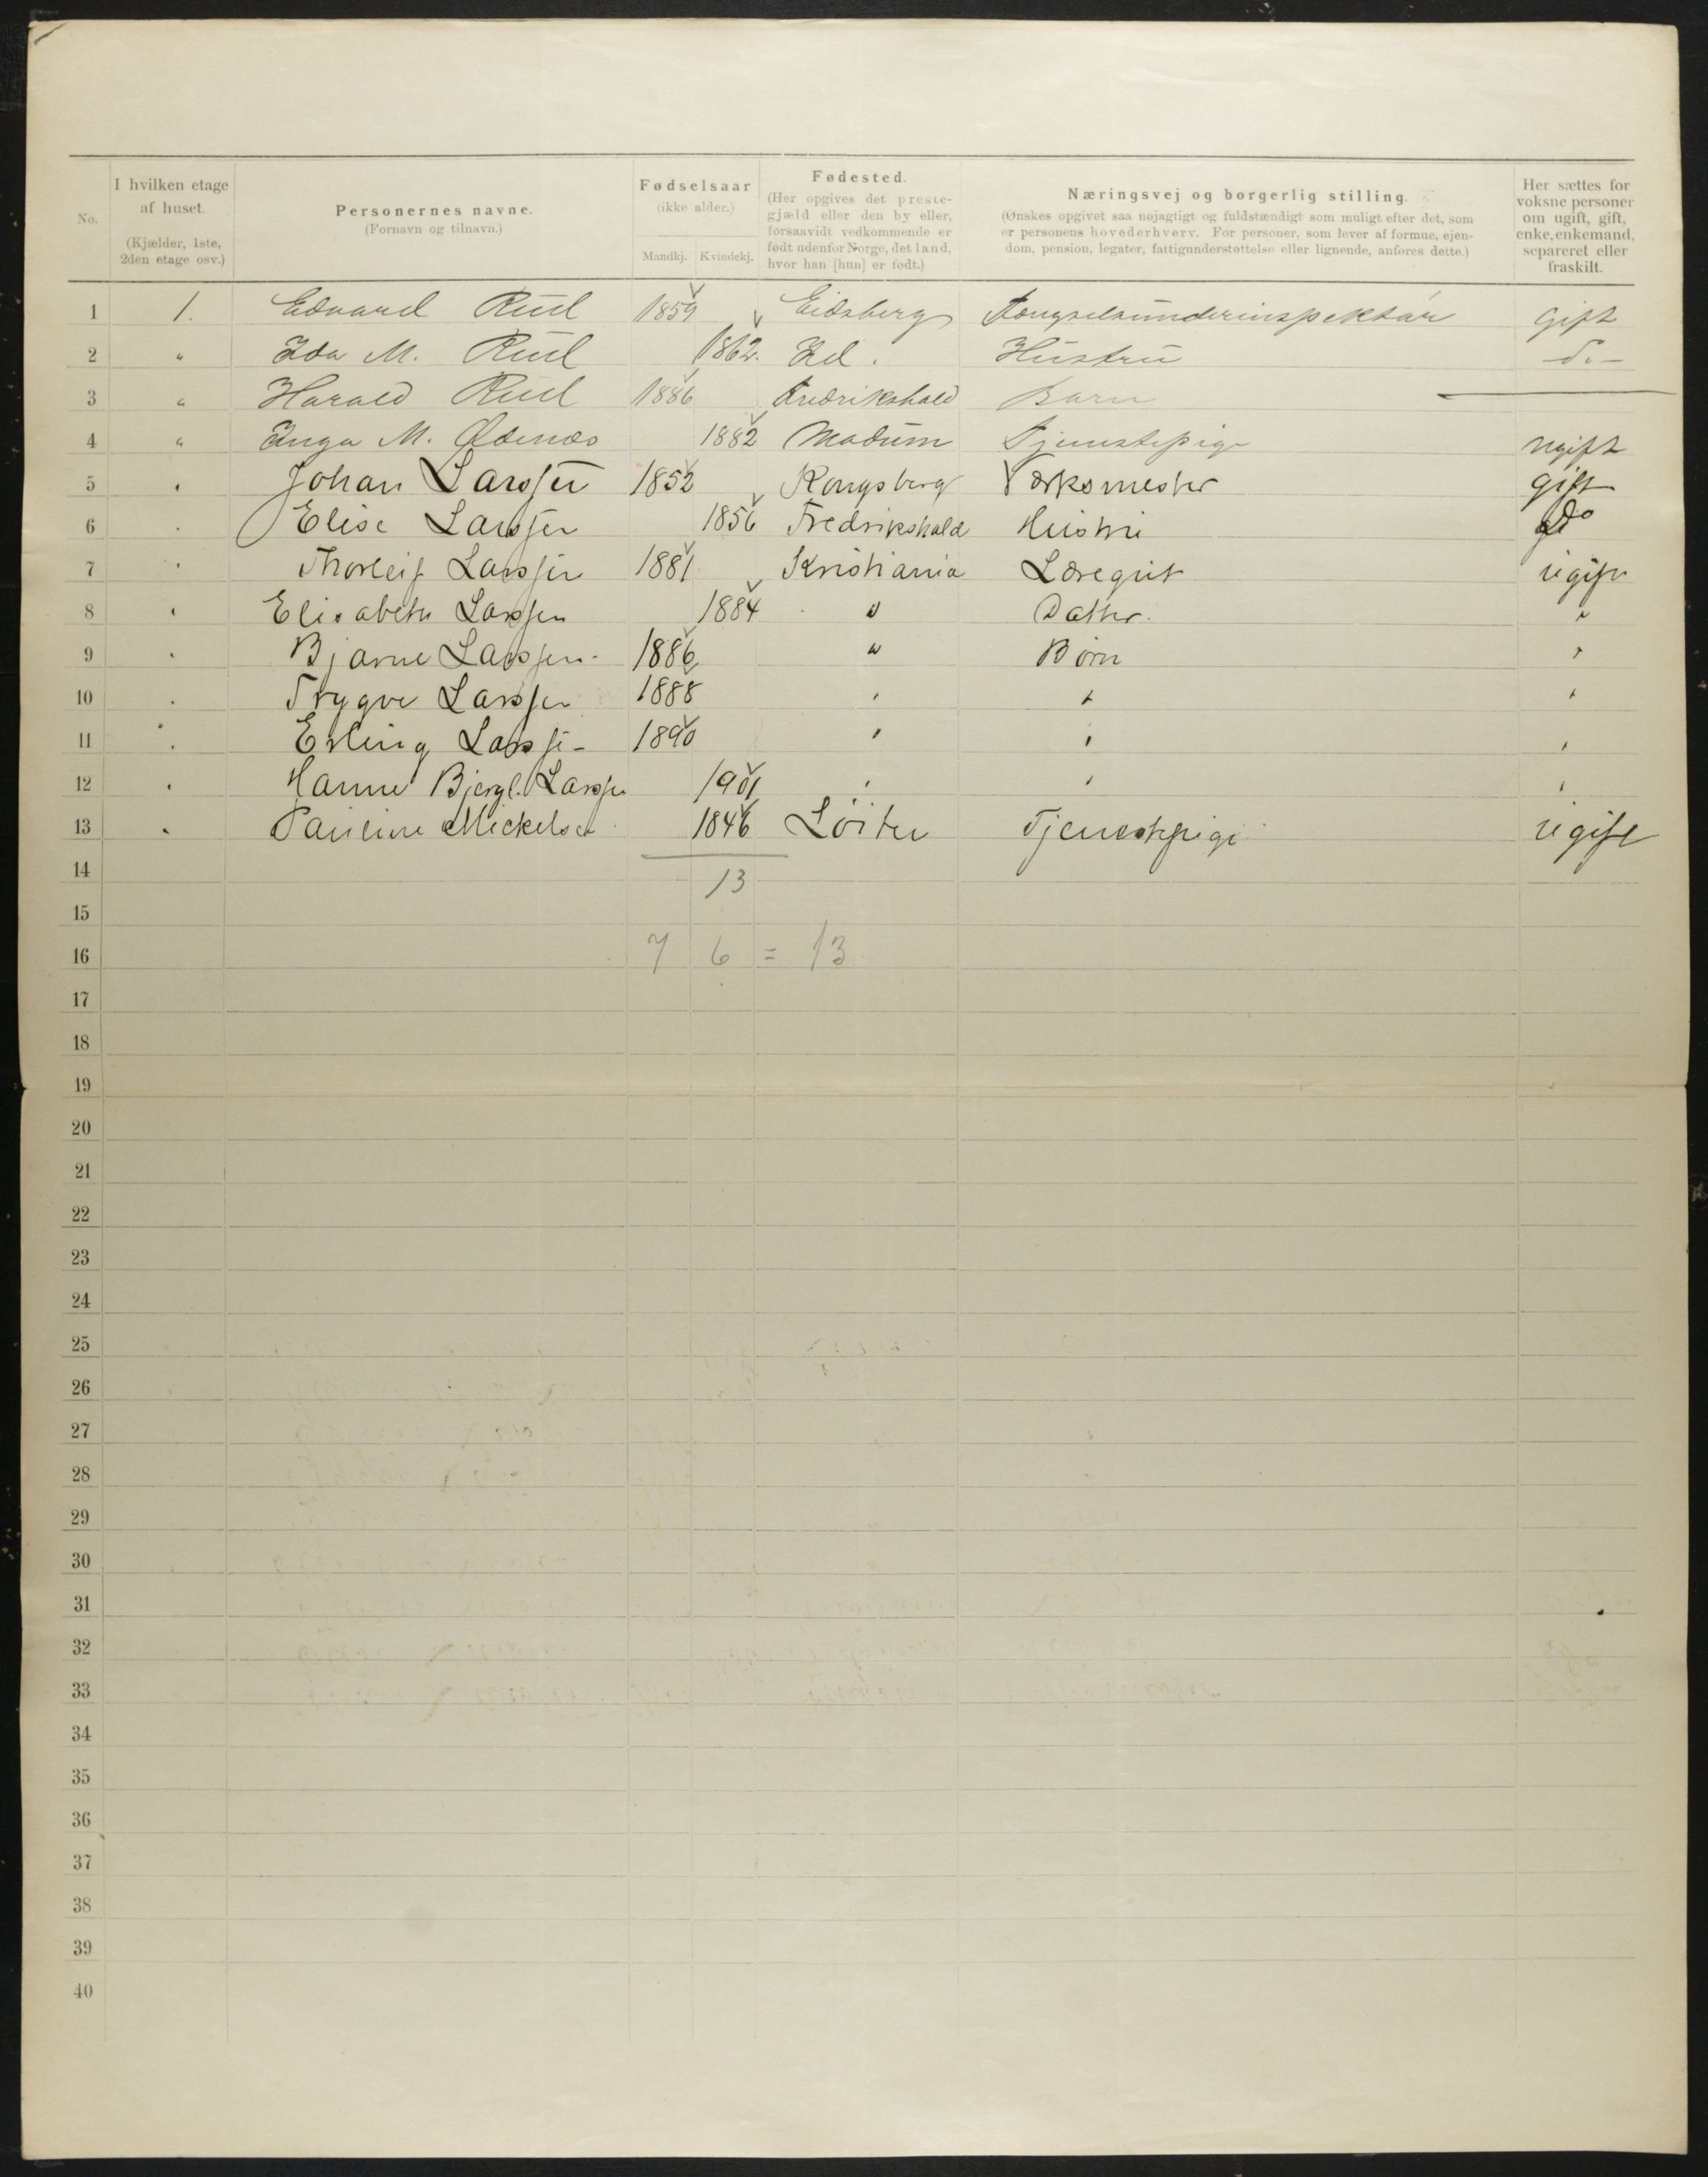 No.
I hvilken etage af huset.
(Kjælder, 1ste, 2den etage osv.)
Personernes navne.
(Fornavn og tilnavn.)
Fødselsaar
(ikke alder.)
Mandkj. Kvindekj.
Fødested.
(Her opgives det preste-
gjæld eller den by eller,
forsaavidt vedkommende er
født udenfor Norge, det land,
hvor han [hun] er født.)
Næringsvej og borgerlig stilling.
(Ønskes opgivet saa nøjagtigt og fuldstændigt som muligt efter det, som
er personens hovederhverv. For personer, som lever af formue, ejen-
dom, pension, legater, fattigunderstøttelse eller lignende, anføres dette.)
Her sættes for
voksne personer
om ugift, gift,
enke, enkemand,
separeret eller
fraskilt.
1 1. Edvard Rud 1859 Eidsberg Fængselsunderinspektør gift
2 " Ida M. Rud 1862. Id. Hustru do
3 " Harald Rud 1886 Fredrikshald Barn —
4 " Inga M. Ødenæs 1882 Modum Tjenestepige ugift
5 " Johan Larssen 1852 Kongsberg Værksmester gift
6 " Elise Larssen 1856 Fredrikshald Hustru do
7 " Thorleif Larssen 1881 Kristiania Læregut ugift
8 " Elisabeth Larssen 1884 " Datter. "
9 " Bjarne Larssen 1886 " Børn "
10 " Trygve Larssen 1888 " " "
11 " Erling Larssen 1890 " " "
12 " Hanna Bjergl. Larssen 1901 " " "
13 " Pauline Mickelsen 1846 Löiten Tjenestepige ugift
14 13
15
16 7 6 = 13
17
18
19
20
21
22
23
24
25
26
27
28
29
30
31
32
33
34
35
36
37
38
39
40